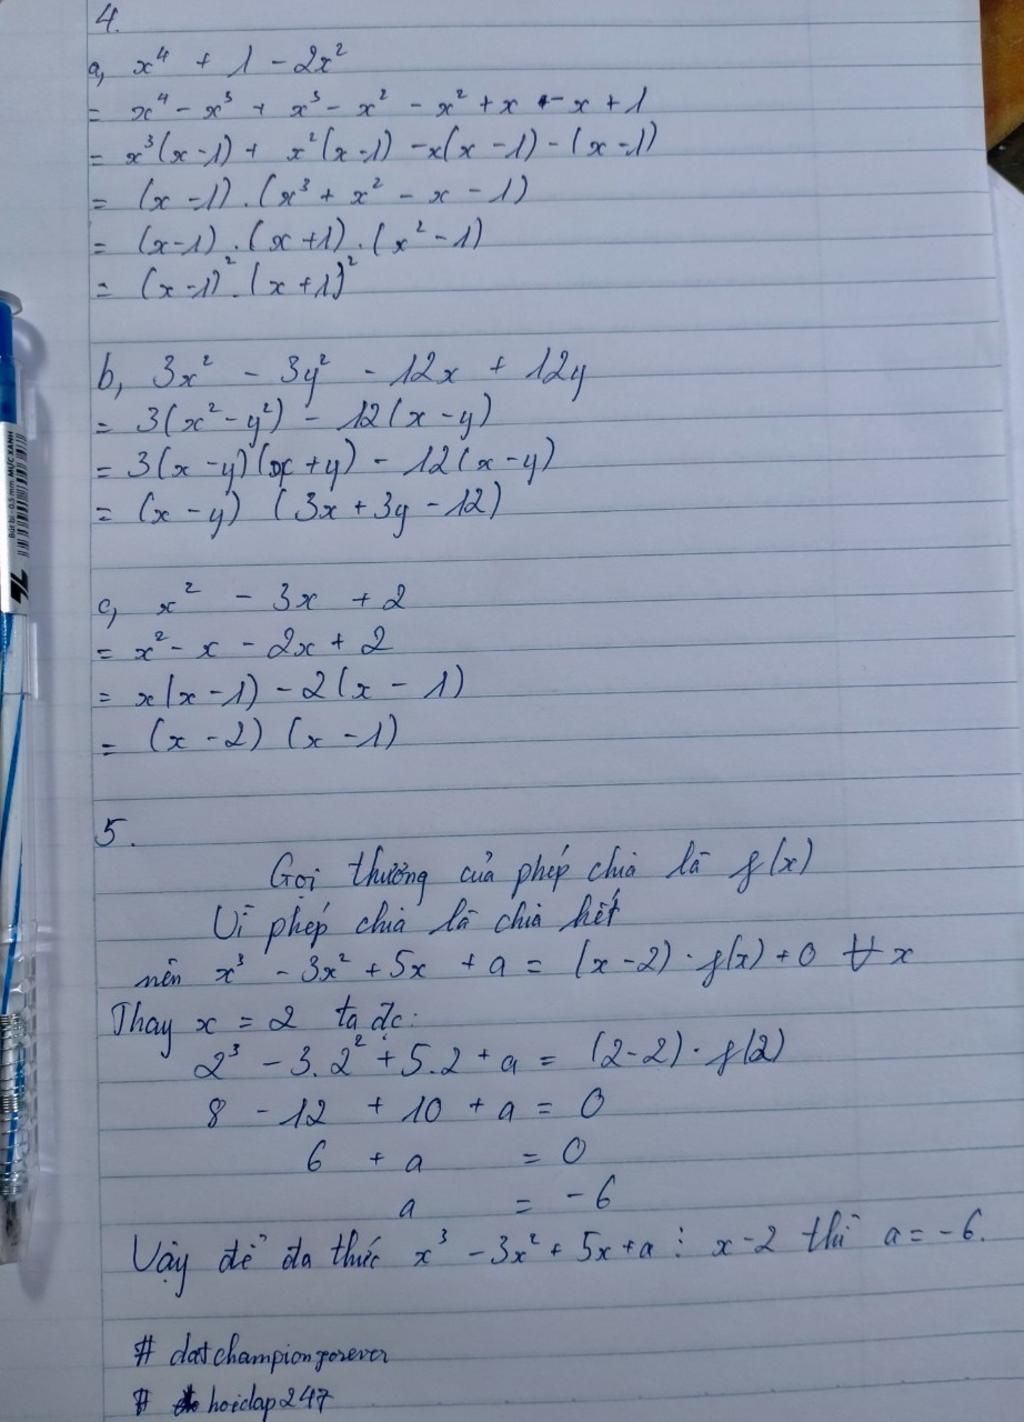 4.
a, x⁴ + 1 - 2x²
= x⁴ - x³ + x³ - x² - x² + x - x + 1
= x³(x-1) + x²(x-1) - x(x-1) - (x-1)
= (x-1).(x³ + x² - x - 1)
= (x-1).(x+1).(x²-1)
= (x-1)².(x+1)²
b, 3x² - 3y² - 12x + 12y
= 3(x²-y²) - 12(x-y)
= 3(x-y)(x+y) - 12(x-y)
= (x-y) (3x+3y-12)
c, x² - 3x + 2
= x² - x - 2x + 2
= x(x-1) - 2(x-1)
= (x-2) (x-1)
5.
Gọi thương của phép chia là f(x)
Vì phép chia là chia hết
nên x³ - 3x² + 5x + a = (x-2).f(x) + 0 ∀x
Thay x = 2 ta đc:
2³ - 3.2² + 5.2 + a = (2-2).f(2)
8 - 12 + 10 + a = 0
6 + a = 0
a = -6
Vậy để đa thức x³ - 3x² + 5x + a ⋮ x-2 thì a = -6.
# datchampionforever
# hoidap247
MỰC XANH
Bút bi - 0.5 mm
TL